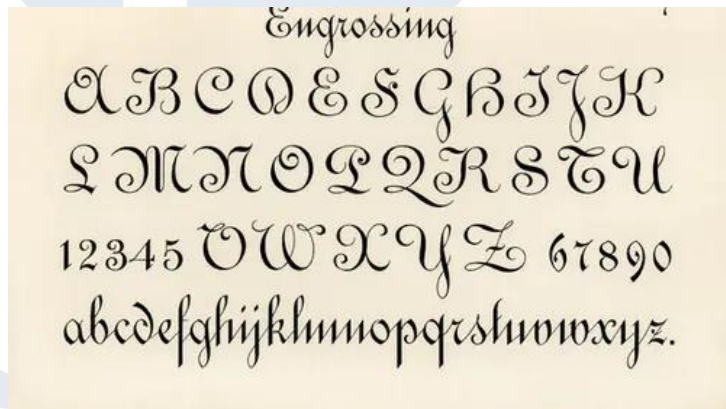 Engrossing
A B C D E F G H I J K
L M N O P Q R S T U
1 2 3 4 5 V W X Y Z 6 7 8 9 0
abcdefghijklmnopqrstuvwxyz.